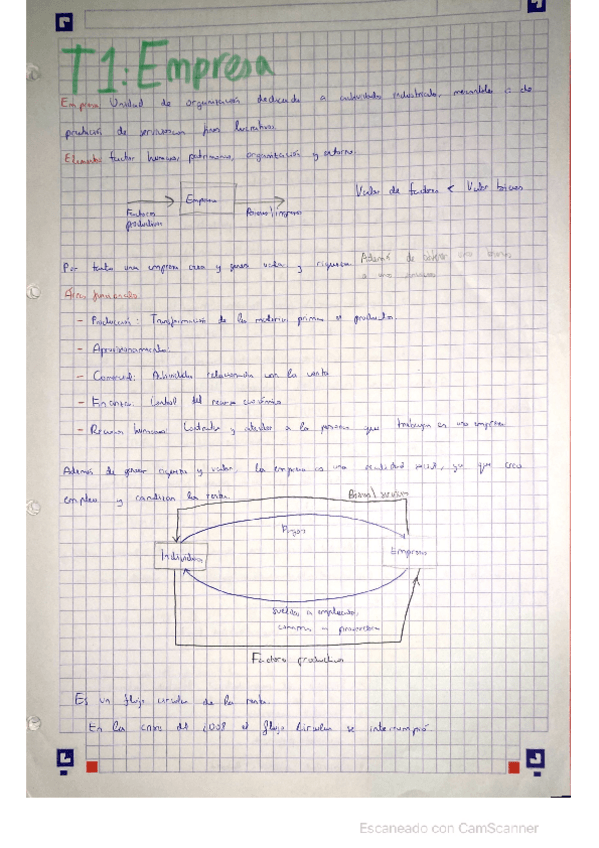 T1: Empresa
Empresa Unidad de organización dedicada a actividades industriales, mercantiles o de
prestación de servicios con fines lucrativos.
Elementos factor humano, patrimonio, organización y entorno.
Empresa
Valor de factores < Valor bienes
Factores
productivos
Bienes/ingresos
Por tanto una empresa crea y genera valor y riqueza. Además de
Áreas funcionales
- Producción: Transformación de las materias primas en productos.
- Aprovisionamiento.
- Comercial: Actividades relacionadas con la venta
- Financiera: Control del recurso económico
- Recursos humanos: a las personas que trabajan en una empresa
Además de generar riqueza y valor, la empresa es una realidad social, ya que crea
empleo y condiciona la renta.
Bienes/servicios
Pagos
Individuos
Empresas
sueldos a empleados,
Factores productivos
Es un flujo circular de la renta.
En la crisis del 2008 el flujo circular se interrumpió.
Escaneado con CamScanner